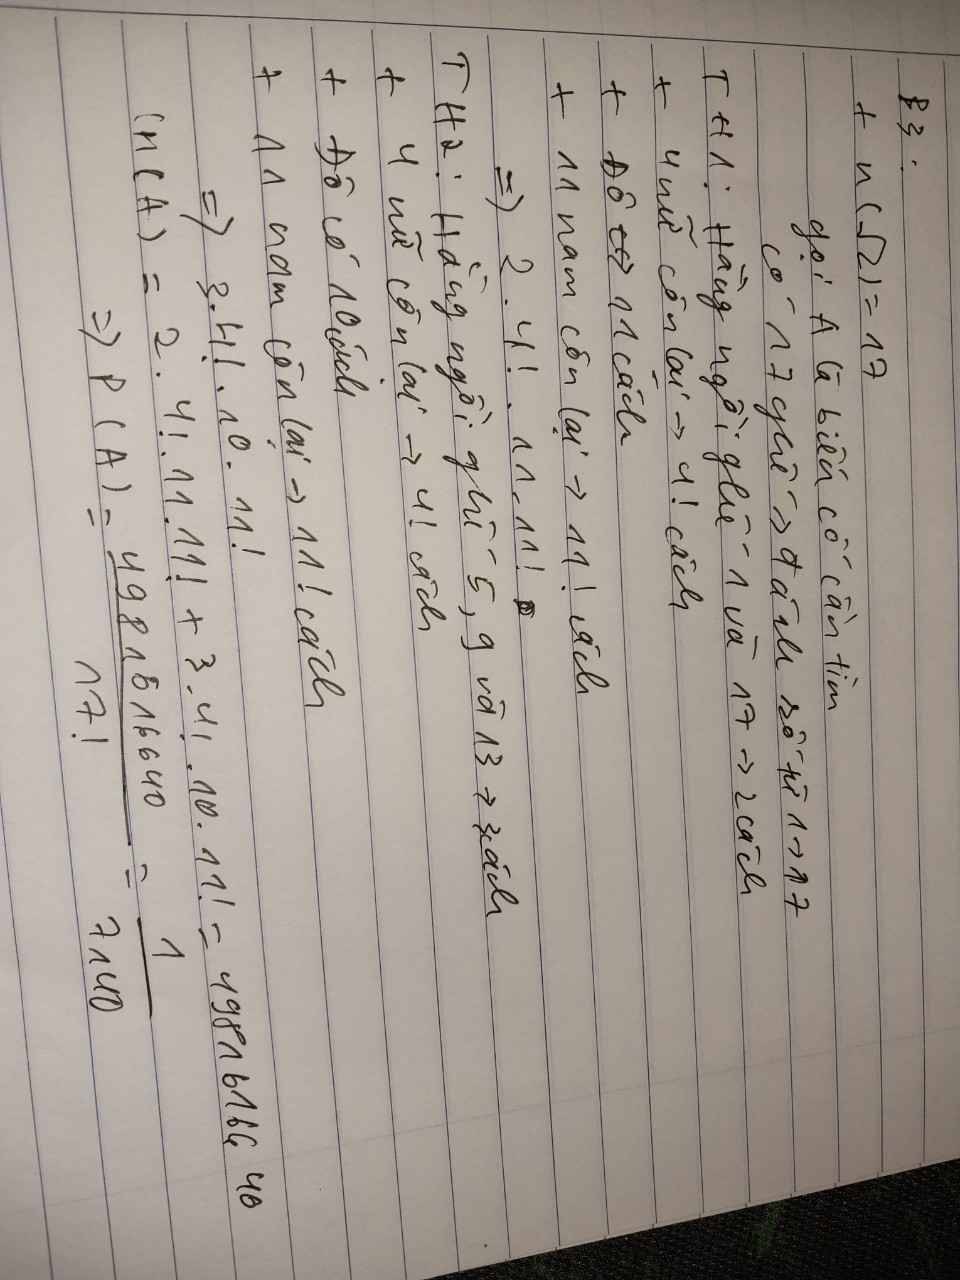 B3:
+ n(Ω) = 17
gọi A là biến cố cần tìm
có 17 ghế → đánh số từ 1 → 17
TH1: Hằng ngồi ghế 1 và 17 → 2 cách
+ 4 nữ còn lại → 4! cách
+ Đô → 11 cách
+ 11 nam còn lại → 11! cách
=) 2.4!.11.11!
TH2: Hằng ngồi ghế 5, 9 và 13 → 3 cách
+ 4 nữ còn lại → 4! cách
+ Đô có 10 cách
+ 11 nam còn lại → 11! cách
=) 3.4!.10.11!
(n(A) = 2.4!.11.11! + 3.4!.10.11! = 49816166 40
=) P(A) = 49815816640 / 17! = 1 / 7140